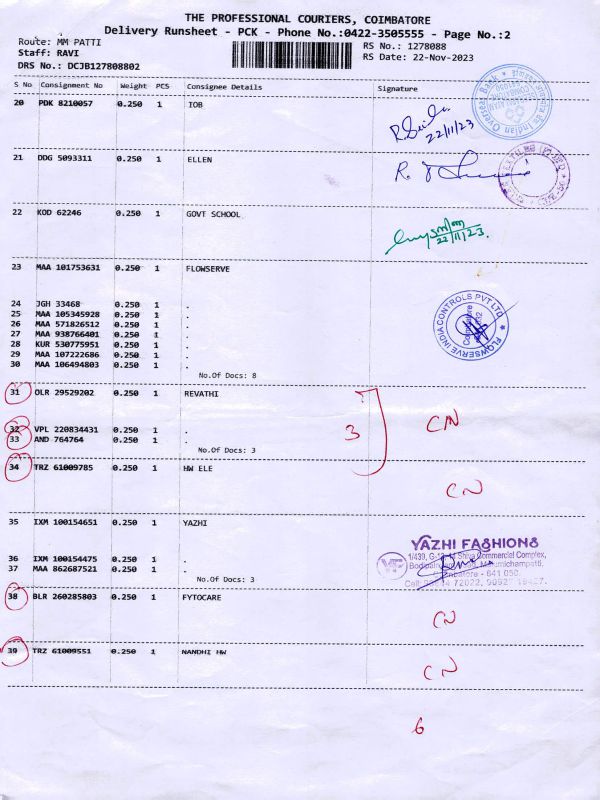 THE PROFESSIONAL COURIERS, COIMBATORE
Delivery Runsheet - PCK - Phone No.:0422-3505555 - Page No.:2
Route: MM PATTI
RS No.: 1278088
Staff: RAVI
RS Date: 22-Nov-2023
DRS No.: DCJB127808802
S No Consignment No Weight PCS Consignee Details Signature
20 PDK 8210057 0.250 1 IOB
22/11/23
21 DDG 5093311 0.250 1 ELLEN
R.
22 KOD 62246 0.250 1 GOVT SCHOOL
22/11/23.
23 MAA 101753631 0.250 1 FLOWSERVE
24 JGH 33468 0.250 1 .
25 MAA 105345928 0.250 1 .
26 MAA 571826512 0.250 1 .
27 MAA 938766401 0.250 1 .
28 KUR 530775951 0.250 1 .
29 MAA 107222686 0.250 1 .
30 MAA 106494803 0.250 1 .
FLOWSERVE INDIA CONTROLS PVT LTD
Coimbatore
No.Of Docs: 8
31 OLR 29529202 0.250 1 REVATHI
32 VPL 220834431 0.250 1 .
33 AND 764764 0.250 1 .
3 CN
No.Of Docs: 3
34 TRZ 61009785 0.250 1 HW ELE
CN
35 IXM 100154651 0.250 1 YAZHI
YAZHI FASHIONS
Commercel Complex,
36 IXM 100154475 0.250 1 .
37 MAA 862687521 0.250 1 .
641 050.
No.Of Docs: 3
38 BLR 260285803 0.250 1 FYTOCARE
CN
39 TRZ 61009551 0.250 1 NANDHI HW
CN
6